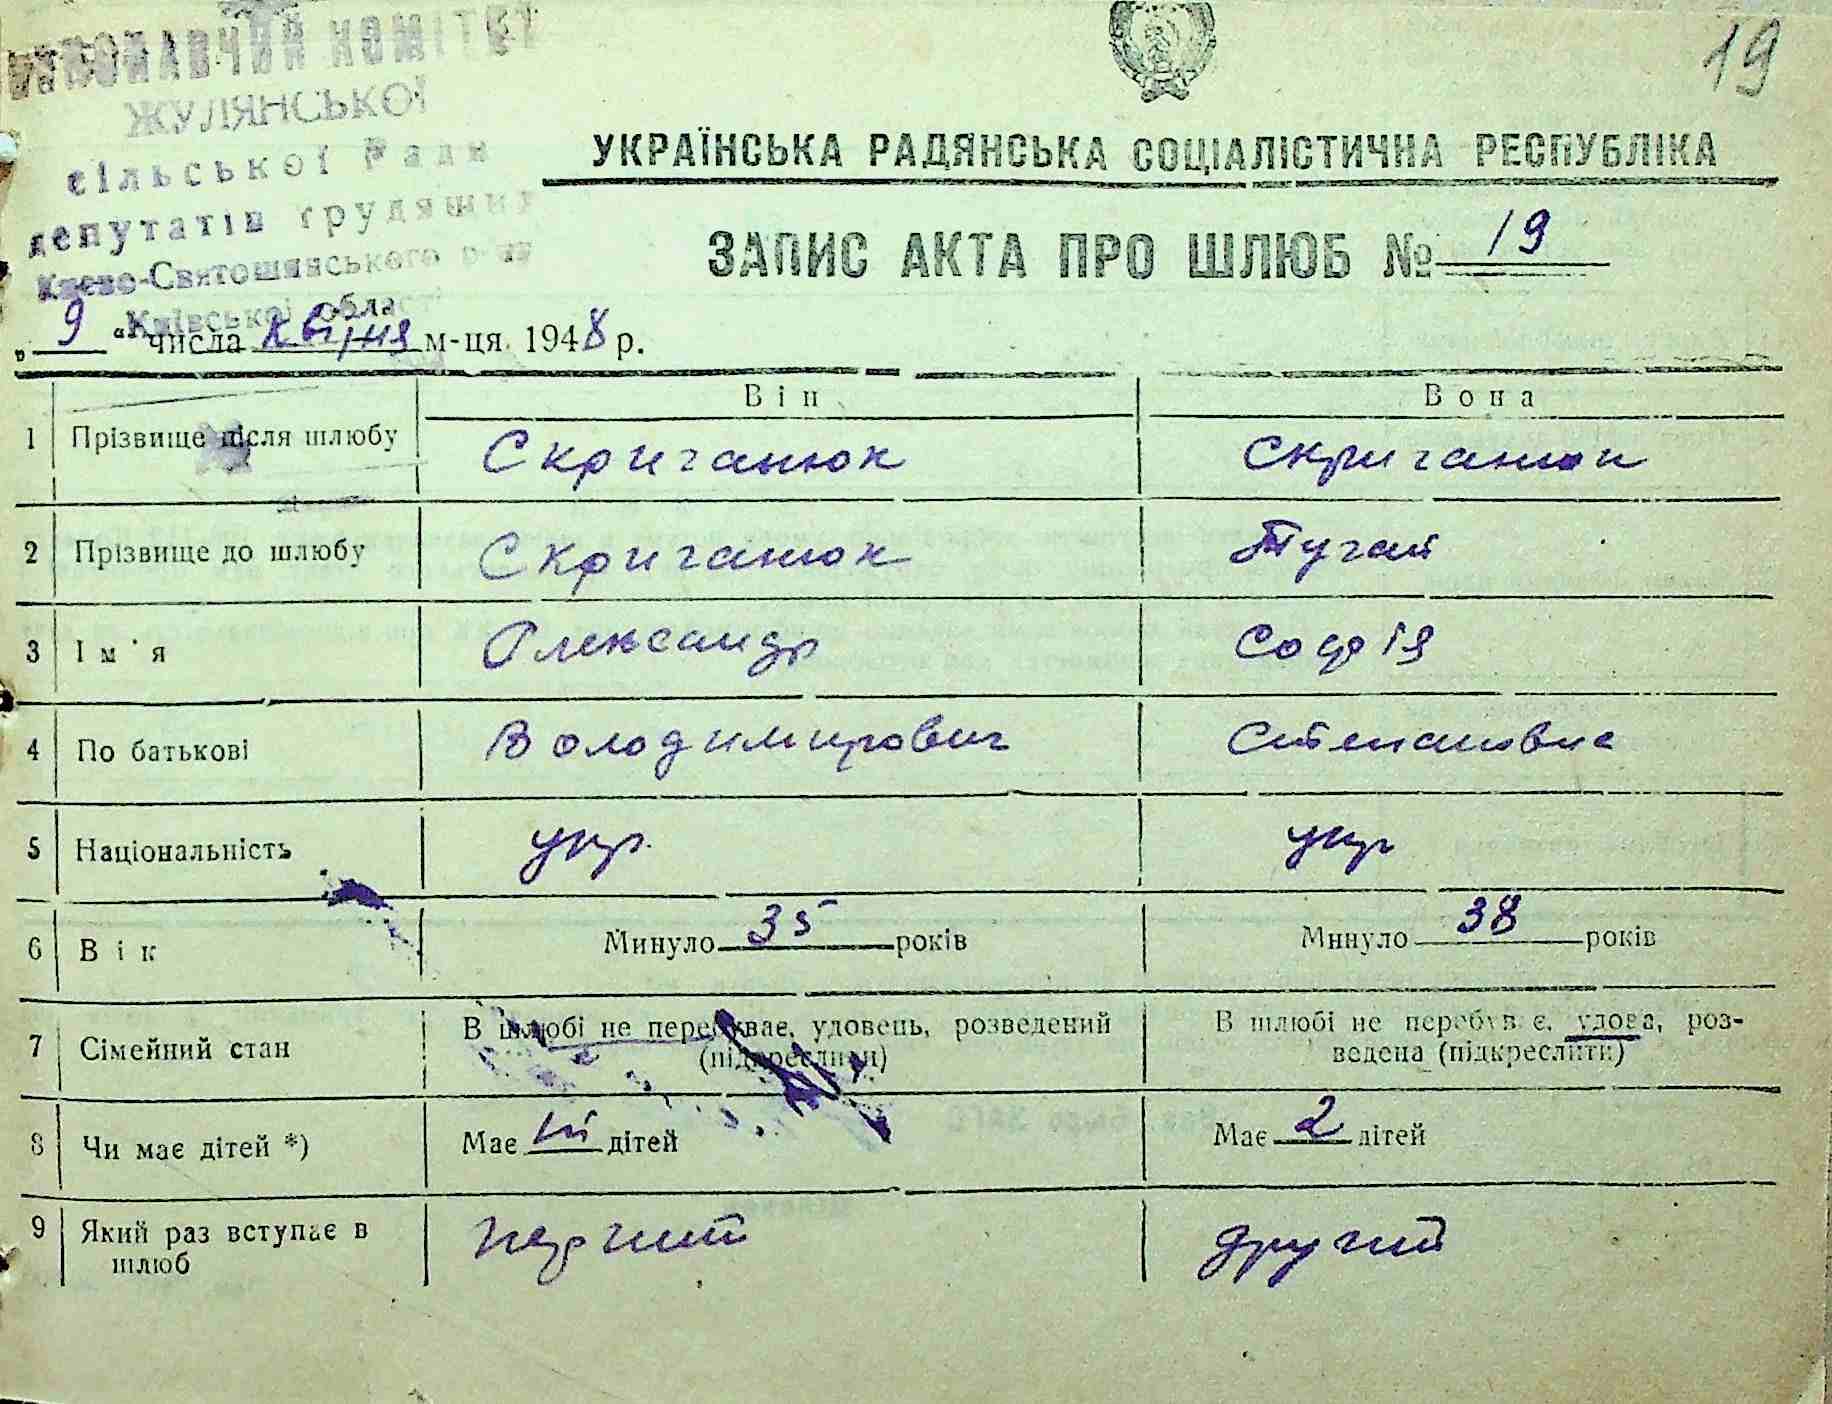 19
ВИКОНАВЧИЙ КОМІТЕТ
ЖУЛЯНСЬКОЇ
сільської Ради
депутатів трудящих
Києво-Святошинського р-ну
Київської області
УКРАЇНСЬКА РАДЯНСЬКА СОЦІАЛІСТИЧНА РЕСПУБЛІКА
ЗАПИС АКТА ПРО ШЛЮБ № 19
„ 9 “ числа квітня м-ця 1948 р.
Він Вона
1 Прізвище після шлюбу Скриганюк Скриганюк
2 Прізвище до шлюбу Скриганюк Тугай
3 Ім'я Олександр Софія
4 По батькові Володимирович Степановна
5 Національність укр. укр
6 Вік Минуло 35 років Минуло 38 років
7 Сімейний стан В шлюбі не перебуває, удовець, розведений (підкреслити) В шлюбі не перебув є, удова, роз-
ведена (підкреслити)
8 Чи має дітей *) Має дітей Має 2 дітей
9 Який раз вступає в шлюб перший другий